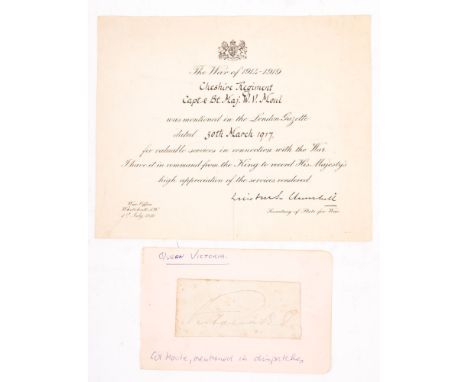 The War of 1914-1919
Cheshire Regiment
Capt. & Bt. Maj. W. V.
was mentioned in the London Gazette
dated 30th March 1917.
for valuable services in connection with the War.
I have it in command from the King to record His Majesty's
high appreciation of the services rendered.
Winston S. Churchill
War Office
Whitehall, S.W.
1st July 1919.
Secretary of State for War
Queen Victoria.
Col Moule, mentioned in dispatches